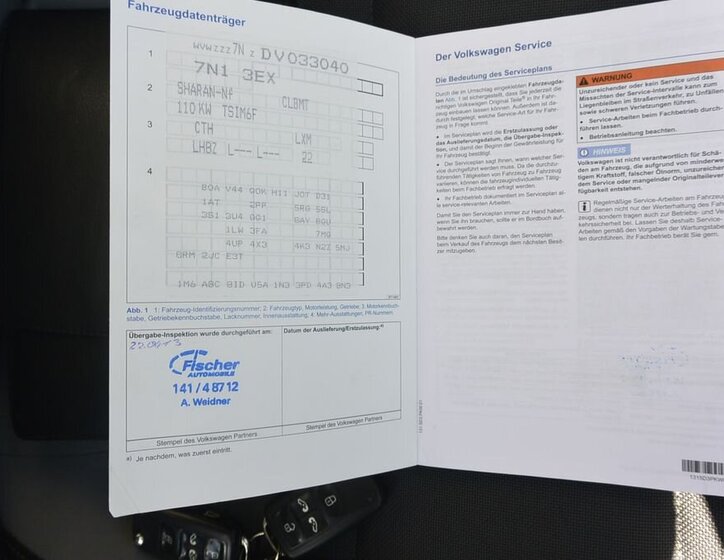 Fahrzeugdatenträger
1 WVWZZZ7N Z DV033040
7N1 3EX
2 SHARAN-Nf CLBMT
110 KW TSIM6F
3 CTH LXM
LHBZ L--- L--- 22
4
V44 H11 JOT D31
1AT 2PF 5RG 5SL
3B1 3U4 BAY
1LW 3FA 7MG
4UP 4X3 4K3 N2Z 5NJ
8RM 2JC E3T
1M6 A8C 8ID 1N3 3PD 4A3
Abb. 1 1: Fahrzeug-Identifizierungsnummer; 2: Fahrzeugtyp, Motorleistung, Getriebe; 3: Motorkennbuch-
stabe, Getriebekennbuchstabe, Lacknummer, Innenausstattung; 4: Mehr-Ausstattungen, PR-Nummern.
Übergabe-Inspektion wurde durchgeführt am:
Fischer
AUTOMOBILE
141 / 48712
A. Weidner
Stempel des Volkswagen Partners
Datum der Auslieferung/Erstzulassung:a)
Stempel des Volkswagen Partners
a) Je nachdem, was zuerst eintritt.
Der Volkswagen Service
Die Bedeutung des Serviceplans
Durch die im Umschlag eingeklebten Fahrzeugda-
ten Abb. 1 ist sichergestellt, dass Sie jederzeit die
richtigen Volkswagen Original Teile® in Ihr Fahr-
zeug einbauen lassen können. Außerdem ist da-
durch festgelegt, welche Service-Art für Ihr Fahr-
zeug in Frage kommt.
• Im Serviceplan wird die Erstzulassung oder
das Auslieferungsdatum, die Übergabe-Inspek-
tion, und damit der Beginn der Gewährleistung für
Ihr Fahrzeug bestätigt.
• Der Serviceplan sagt Ihnen, wann welcher Ser-
vice durchgeführt werden muss. Da die durchzu-
führenden Tätigkeiten von Fahrzeug zu Fahrzeug
variieren, können die fahrzeugindividuellen Tätig-
keiten beim Fachbetrieb erfragt werden.
• Ihr Fachbetrieb dokumentiert im Serviceplan al-
le service-relevanten Arbeiten.
Damit Sie den Serviceplan immer zur Hand haben,
wenn Sie ihn brauchen, sollte er im Bordbuch auf-
bewahrt werden.
Bitte denken Sie auch daran, den Serviceplan
beim Verkauf des Fahrzeugs dem nächsten Besit-
zer mitzugeben.
WARNUNG
Unzureichender oder kein Service und das
Missachten der Service-Intervalle kann zum
Liegenbleiben im Straßenverkehr, zu Unfällen
sowie schweren Verletzungen führen.
• Service-Arbeiten beim Fachbetrieb durch-
führen lassen.
• Betriebsanleitung beachten.
HINWEIS
Volkswagen ist nicht verantwortlich für Schä-
den am Fahrzeug, die aufgrund von minderwer-
tigem Kraftstoff, falscher Ölnorm, unzureichen-
dem Service oder mangelnder Originalteilever-
fügbarkeit entstehen.
Regelmäßige Service-Arbeiten am Fahrzeug
dienen nicht nur der Werterhaltung des Fahr-
zeugs, sondern tragen auch zur Betriebs- und Ver-
kehrssicherheit bei. Lassen Sie deshalb Service-
Arbeiten gemäß den Vorgaben der Wartungstabel-
len durchführen. Ihr Fachbetrieb berät Sie gern.